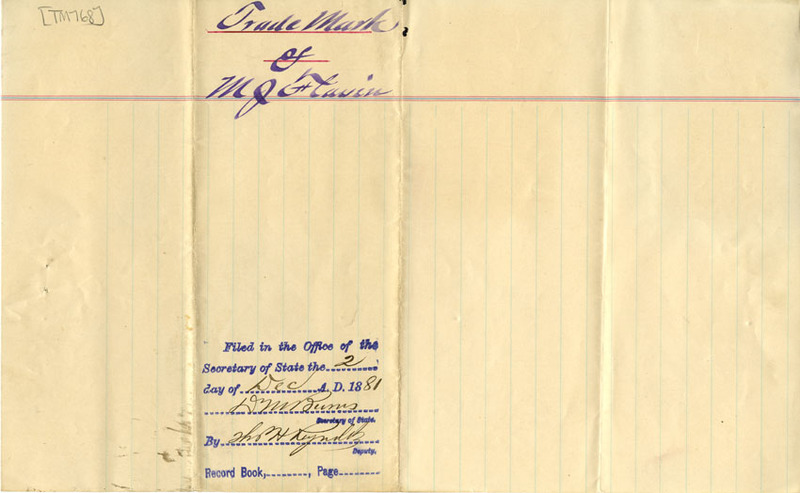 [TM768]
Trade Mark
of
M J Flavin
Filed in the Office of the
Secretary of State the 2
day of Dec A.D. 1881
D M Burns
Secretary of State.
By Tho H Reynolds
Deputy.
Record Book, , Page